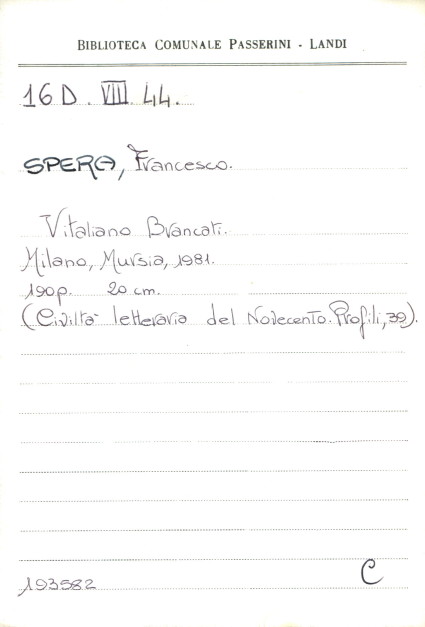 BIBLIOTECA COMUNALE PASSERINI - LANDI
16 D. VIII. 44.
SPERA, Francesco.
Vitaliano Brancati.
Milano, Mursia, 1981.
190 p. 20 cm.
(Civiltà letteraria del Novecento. Profili, 39).
C
193582